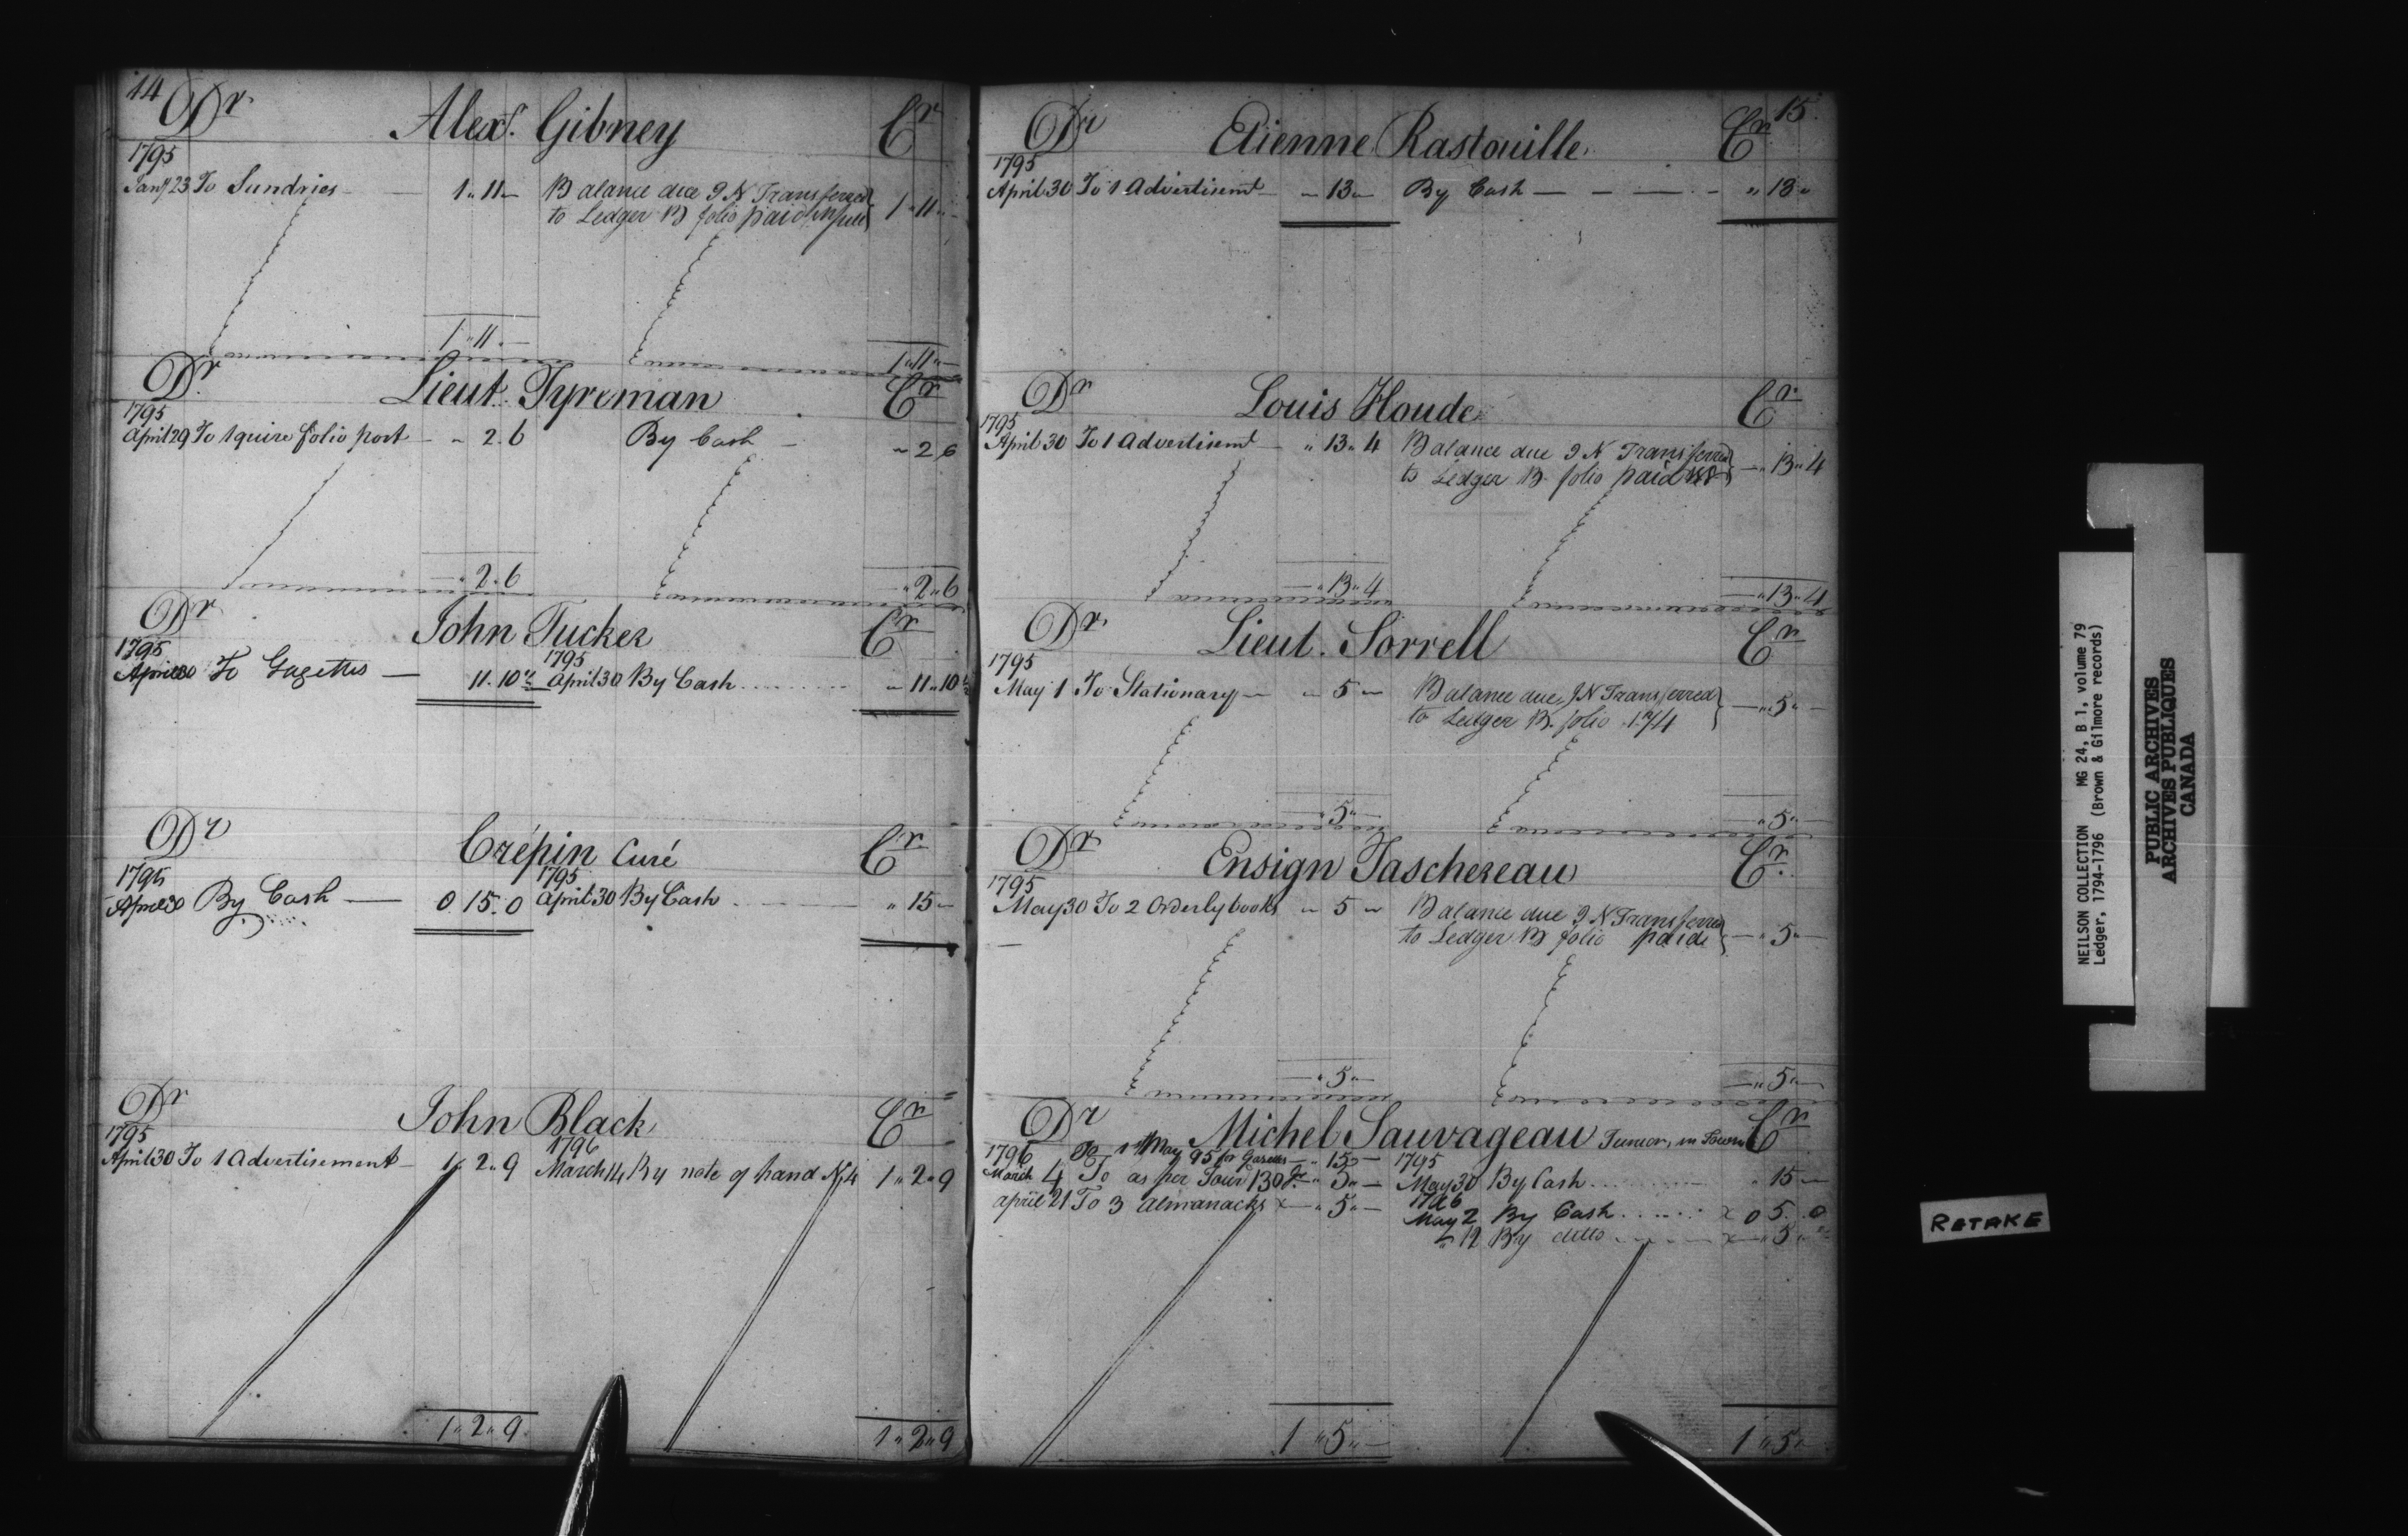 14
Dr Alexr. Gibney Cr
1795
Jany 23 To Sundries — 1 " 11 — Balance due J N Transferred
to Ledger B folio paid in full } 1 " 11 " —
1 " 11 " — 1 " 11 " —
Dr Lieut. Tyreman Cr
1795
April 29 To 1 quire folio post — " 2 . 6 By Cash — " 2 . 6
— " 2 . 6 " 2 " 6
Dr John Tucker Cr
1795 1795
April 30 To Gazettes — 11 . 10 April 30 By Cash . . . . . . " 11 " 10
Dr Crépin Curé Cr
1795 1795
April 30 By Cash — 0 . 15 . 0 April 30 By Cash — " 15 —
Dr John Black Cr
1795 1796
April 30 To 1 Advertisement — 1 " 2 " 9 March 14 By note of hand N 4 1 " 2 " 9
1 " 2 " 9 1 " 2 " 9
15.
Dr Etienne Rastouille. Cr
1795
April 30 To 1 Advertisemt — " 13 " By Cash — — — — " 13 "
Dr Louis Houde Cr
1795
April 30 To 1 Advertisemt — " 13 " 4 Balance due J N Transferred
to Ledger B folio paid } — " 13 " 4
— " 13 " 4 — " 13 " 4
Dr Lieut. Sorrell Cr
1795
May 1 To Stationary — " 5 — Balance due J N Transferred
to Ledger B. folio 174 } — " 5 " —
— " 5 " — — " 5 " —
Dr Ensign Taschereau Cr.
1795
May 30 To 2 Orderly books " 5 — Balance due J N Transferred
to Ledger B folio paid } — " 5 —
— " 5 " — — " 5 " —
Dr Michel Sauvageau Junior, in Town Cr
1796 To 1 May 95 for Gazettes — " 15 — 1795
March 4 To as per Jour 130 — " 5 " — May 30 By Cash . . . . . . " 15 —
April 21 To 3 Almanacks x — " 5 " — 1796
May 2 By Cash . . . . . . x 0 5 . 0
" 12 By ditto . . . . . . x — " 5 " —
1 " 5 " — 1 " 5 "
NEILSON COLLECTION MG 24, B 1, volume 79
Ledger, 1794-1796 (Brown & Gilmore records)
PUBLIC ARCHIVES
ARCHIVES PUBLIQUES
CANADA
RETAKE